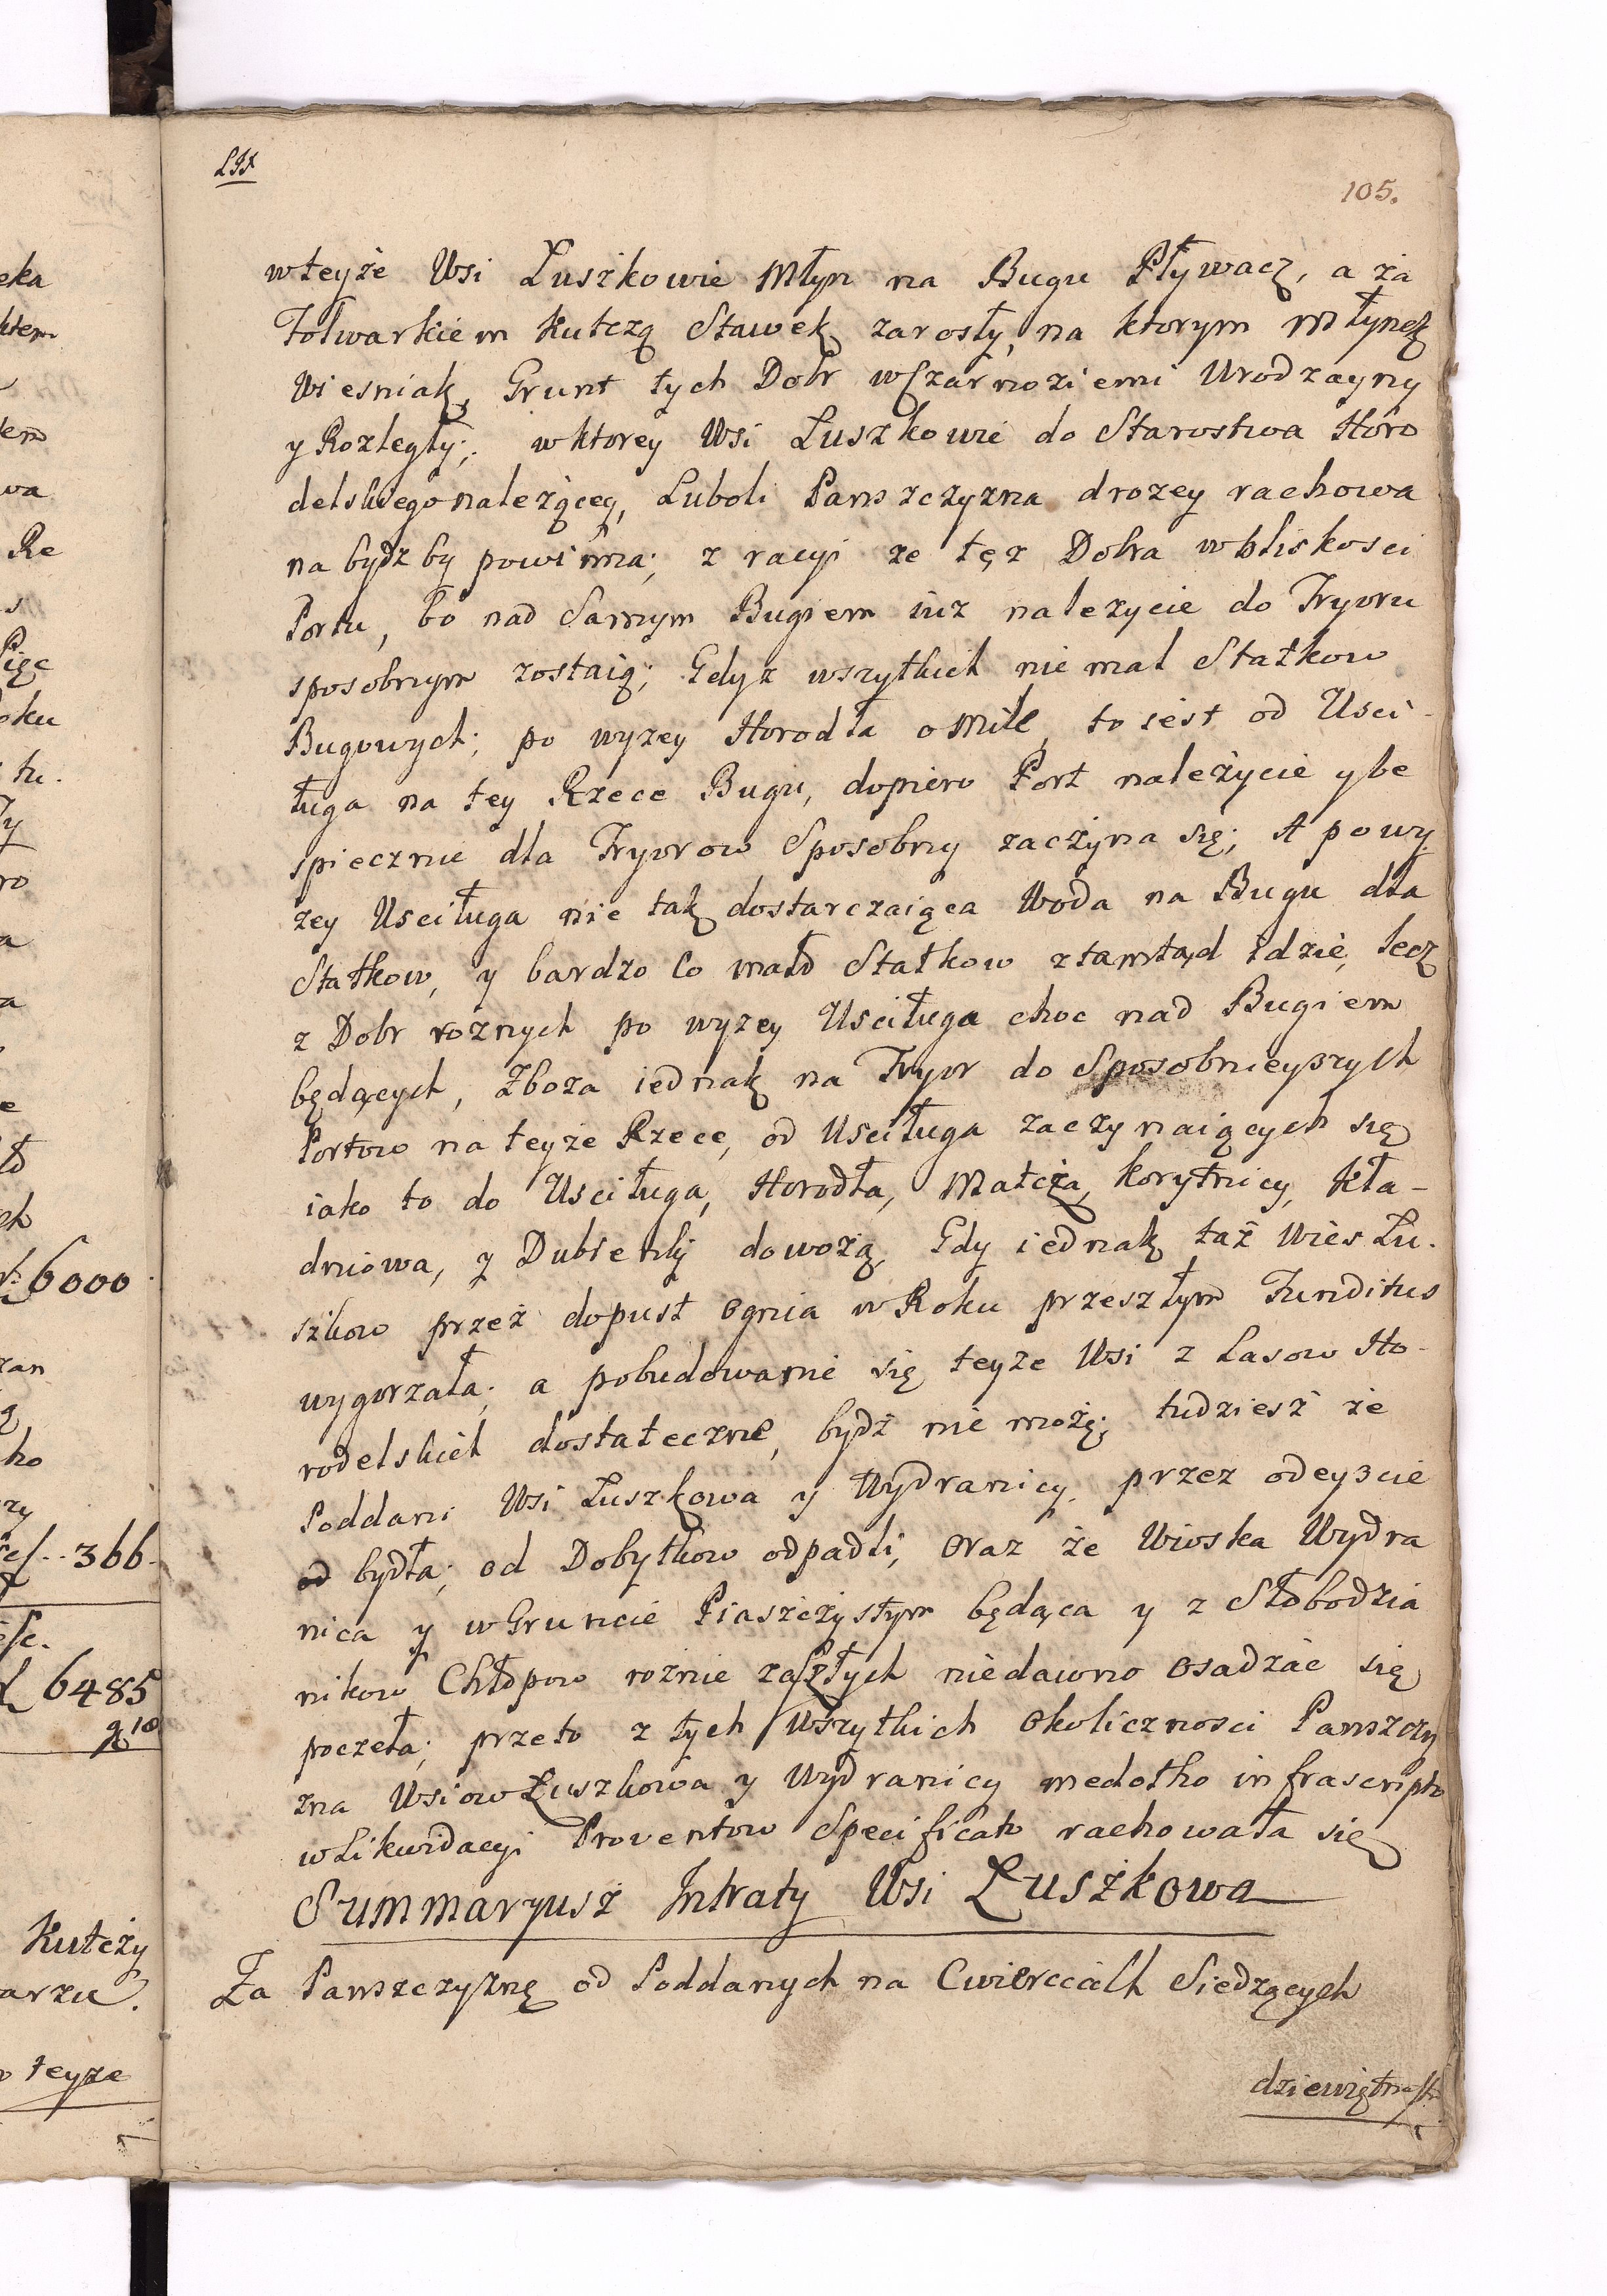 105.
wteyże Wsi Łuszkowie Młyn na Bugu Pływacz, a za
Folwarkiem Kutczą Stawek zarosły, na ktorym Młynek
Wiesniak, Grunt tych Dobr wCzarnoziemi Urodzayny
y Rozległy; wktorey Wsi Łuszkowie do Starostwa Horo
delskiego należącey, Luboli Panszczyzna drozey rachowa
na bydz by powinna; z racyi ze też Dobra wbliskosci
Portu, bo nad Samym Bugiem iuz nalezycie do Tryoru
sposobnym zostaią; Gdyz wszytkich nie mal Statkow
Bugowych; po wyzey Horodła o Mile, to iest od Usci-
ługa na tey Rzece Bugu, dopiero Port należycie y be
spiecznie dla Tryorow Sposobny zaczyna się; A powy
zey Usciługa nie tak dostarczaiąca Woda na Bugu dla
Statkow, y bardzo Co mało Statkow ztamtąd idzie, lecz
z Dobr roznych po wyzey Usciługa choc nad Bugiem
będących, Zboza iednak na Tryor do Sposobnieyszych
Portow na teyże Rzece, od Usciługa zaczynaiących się
iako to do Usciługa, Horodła, Matcza, Korytnicy, Kła-
dniowa, y Dubienki dowożą, Gdy iednak taż Wies Łu-
szkow przez dopust Ognia wRoku przeszłym Funditus
wygorzała; a pobudowanie się teyze Wsi z Lasow Ho-
rodelskich dostateczne, bydź nie może; tudziesz że
Poddani Wsi Łuszkowa y Wydranicy, przez odeyscie
od bydła; od Dobytkow odpadli, Oraz że Wioska Wydra
nica y wGruncie Piaszczystym będąca y z Słobodzia
nikow Chłopow roznie zaszłych niedawno Osadzać się
poczeła; przeto z tych Wszytkich Okolicznosci Panszczy
zna Wsiow Łuszkowa y Wydranicy medotho infrascripto
wLikwidacyi Proventow Specificato rachowała się
Summaryusz Intraty Wsi Łuszkowa
Za Panszczyznę od Poddanych na Cwierciach Siedzących
dziewiętnastu
eka
wa
Re
Pięc
oku
tu.
6000
ho
366.
6485
Kutczy
arzu.
teyze